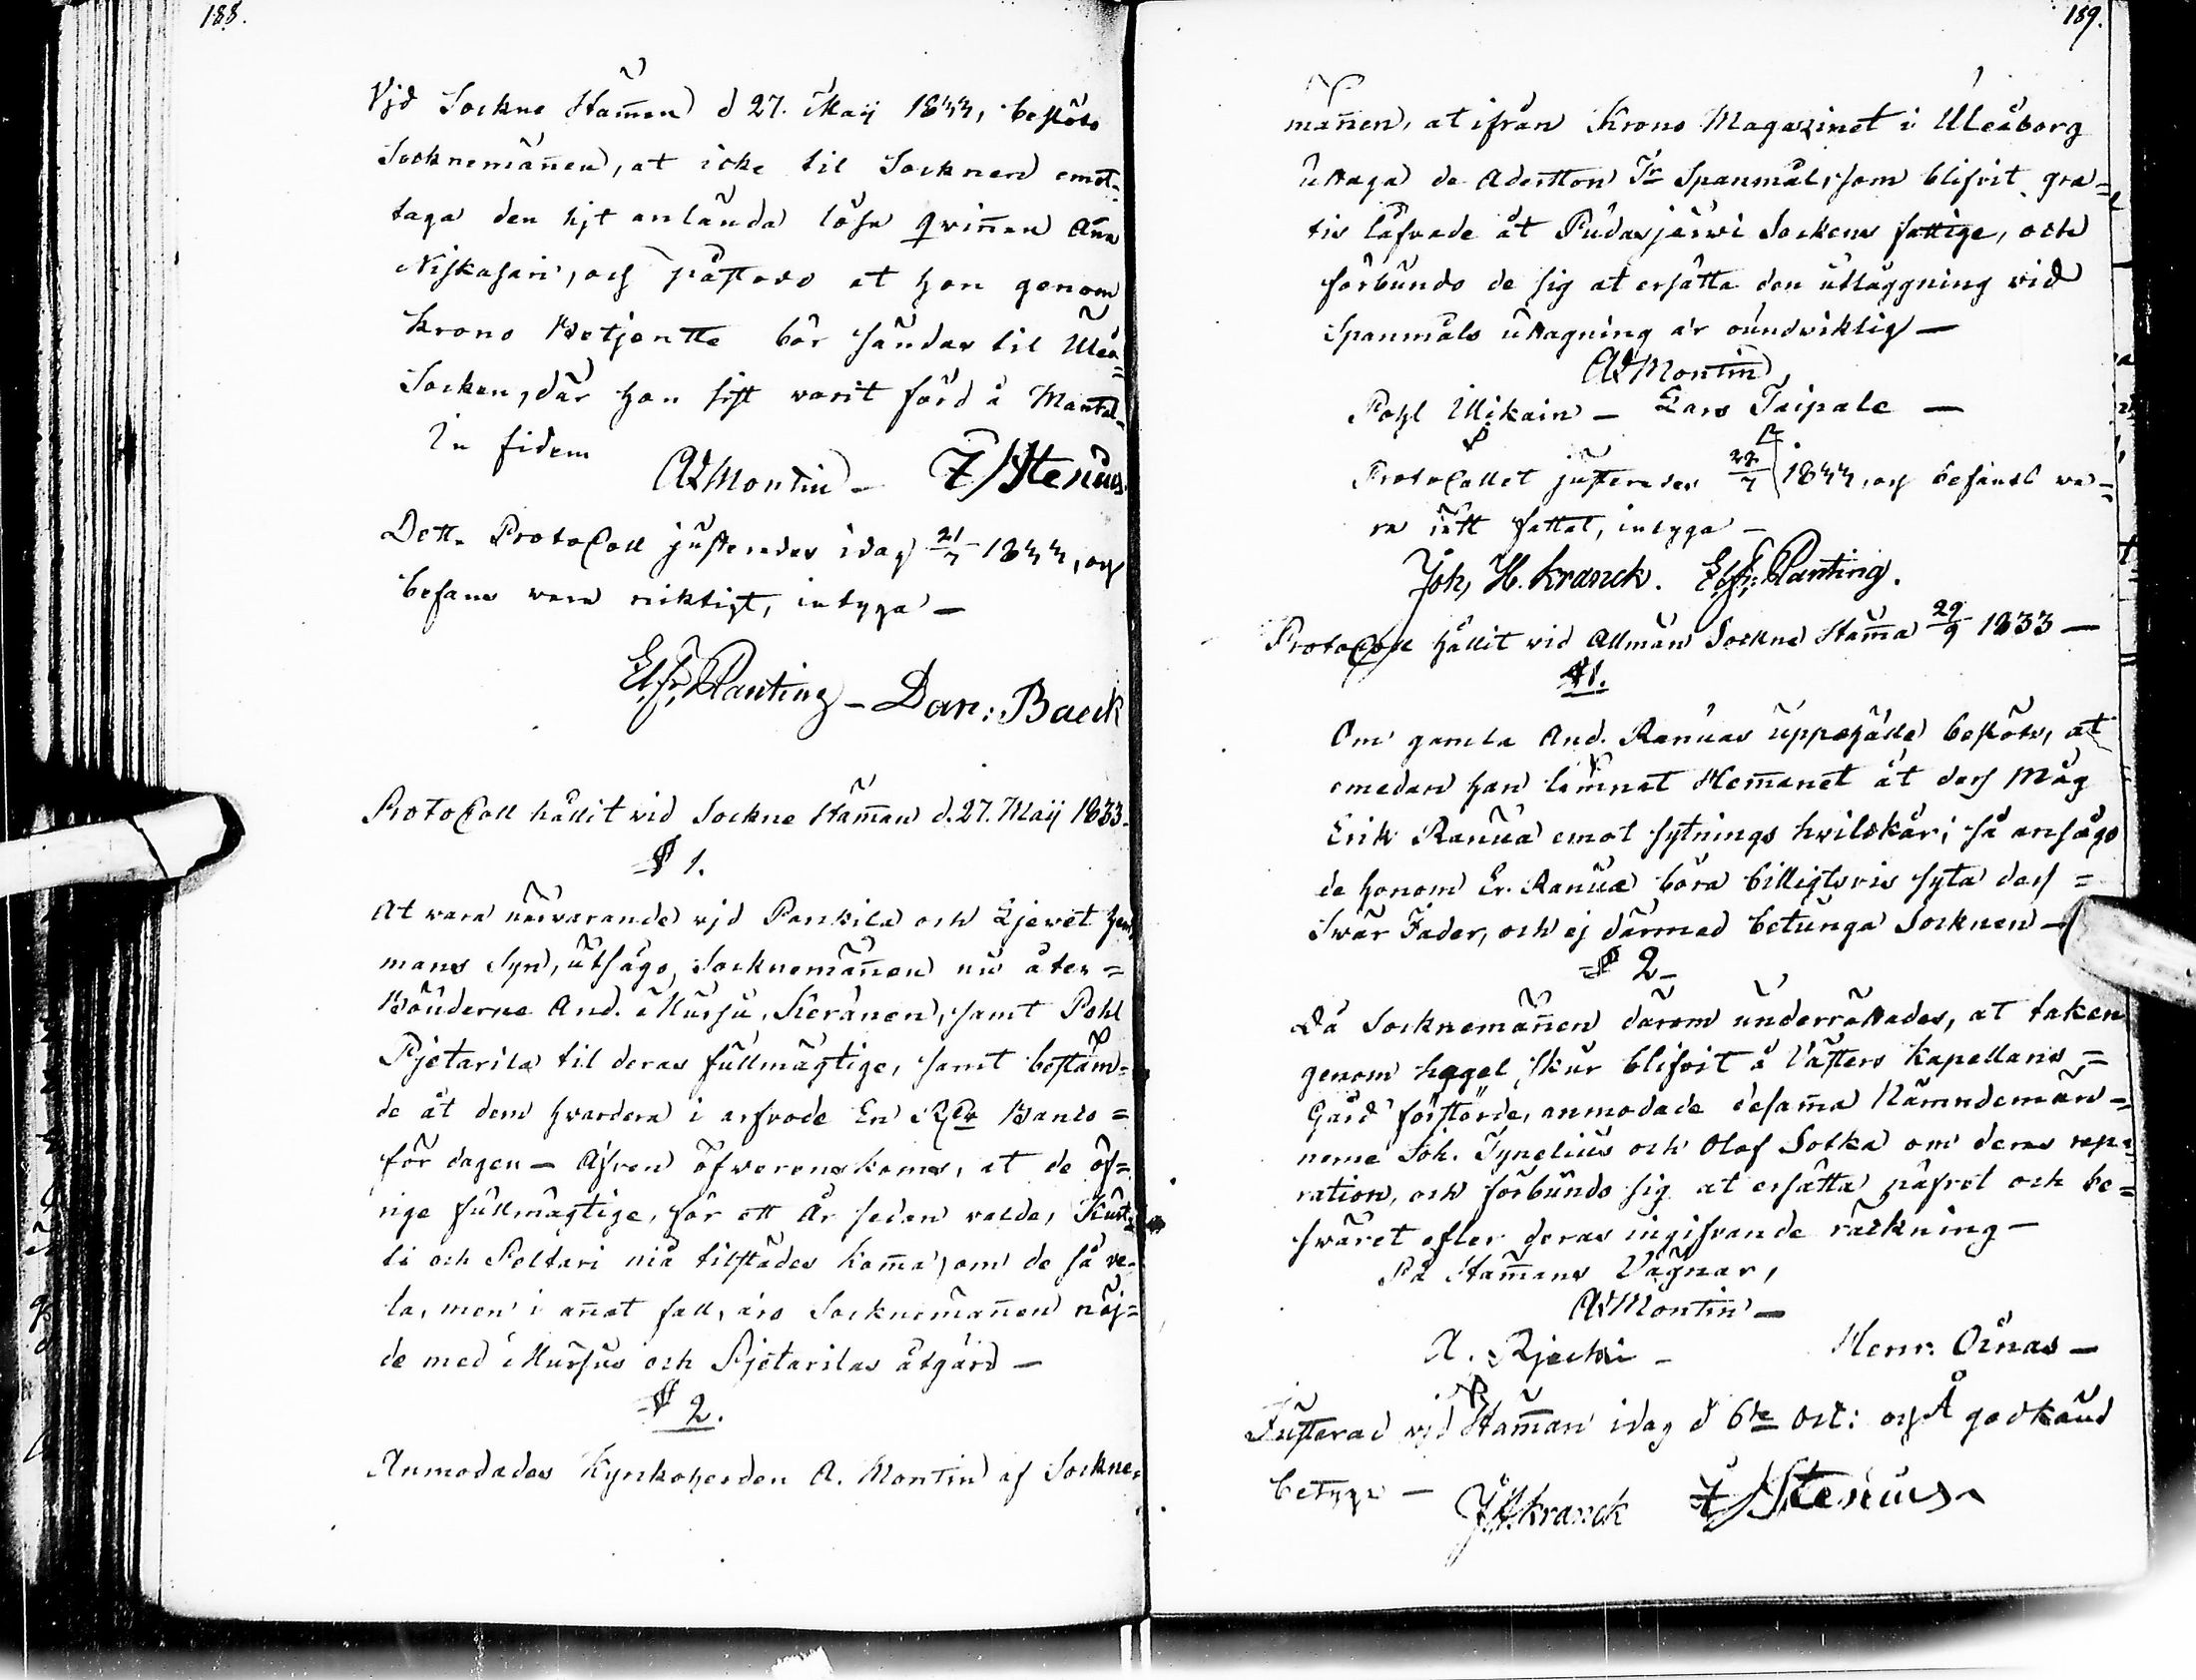 188.
Vjd Sockne Stam̄an d 27. Maij 1833, beslöts
Socknemän̄en, at icke til Socknen emot-
taga den hjt anlända lösa qvin̄an An̄a
Niskasari, och påstods at hon genom
Krono Betjente bör sändas til Uleå
Socken, där hon sist varit förd å Mantal-
In fidem
A Montin – F / Stenius
Detta Protocoll justerades idag 21/7 1833, och
befans vara riktigt, intyga –
El. Fr. Planting – Dan: Baeck
Protocoll hållit vid Sockne Stam̄an d. 27. Maij 1833.
§ 1.
At vara närvarande vjd Pankila och Ljevet Hem
mans Syn, utsågo, Socknemän̄en nu åter=
Bönderne And. Mursu, Keränen, samt Pohl
Pjetarila til deras fullmägtige, samt bestäm=
de åt dem hvardera i arfvode En Rdr Banco=
för dagen – Äfven öfwerenskoms, at de öf=
rige fullmägtige, för ett År sedan valde, Kurt=
ti och Poltari må tilstädes kom̄a, om de så ve-
la, men i an̄at fall, äro Socknemän̄en nöj=
de med Mursus och Pjetarilas åtgärd –
§ 2.
Anmodades Kyrkoherden A. Montin af Sockne=
189.
män̄en, at ifrån Krono Magazinet i Uleåborg
uttaga de Aderton Tr Spanmål, som blifvit gra=
tis låfvade åt Pudasjärwi Sockens fattige, och
förbundo de sig at ersätta den utläggning vid
Spanmåls uttagning är oundviklig –
A Montin
Pohl Illikain – Lars Taipale –
Protocollet justerades 22/7 1833, och befants va=
ra rätt fattat, intyga –
Joh. H. Kranck. El. Fr. Planting.
Protocoll hållit vid Allmän Sockne Stäm̄a 29/9 1833 –
§ 1.
Om gamla And. Ranuas uppehälle beslöts, at
emedan han lämnat Hem̄anet åt dess Måg
Erik Ranua emot sytnings hvilkår; så ansågo
de honom Er. Ranua böra billigtvis syta dess =
Svär Fader, och ej därmed betunga Socknen –
§ 2 –
Då Socknemän̄en därom underrättades, at taken
genom hagel skur blifvit å Västers Kapellans =
Gård förstörde, anmodade desam̄a Nämndemän=
nerne Joh. Tynelius och Olof Sotka om deras repa=
ration, och förbundo sig at ersätta påfret och be=
swäret efter deras ingifvande räckning –
På Stam̄ans Vägnar,
A Montin –
A. Rjecki – Henr. Oinas –
Justerad vjd Stam̄an idag d 6te Oct: och godkänd
betyga – J H Kranck F / Stenius